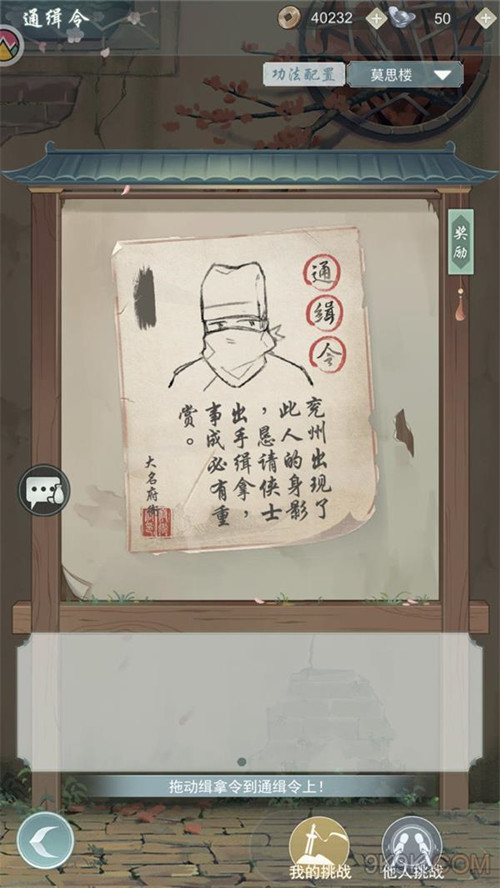 通缉令
40232
50
功法配置
莫思楼
奖励
通缉令
兖州出现了
此人的身影
，恳请侠士
出手缉拿，
事成必有重
赏。
大名府衙
拖动缉拿令到通缉令上！
我的挑战
他人挑战
9K9K.COM